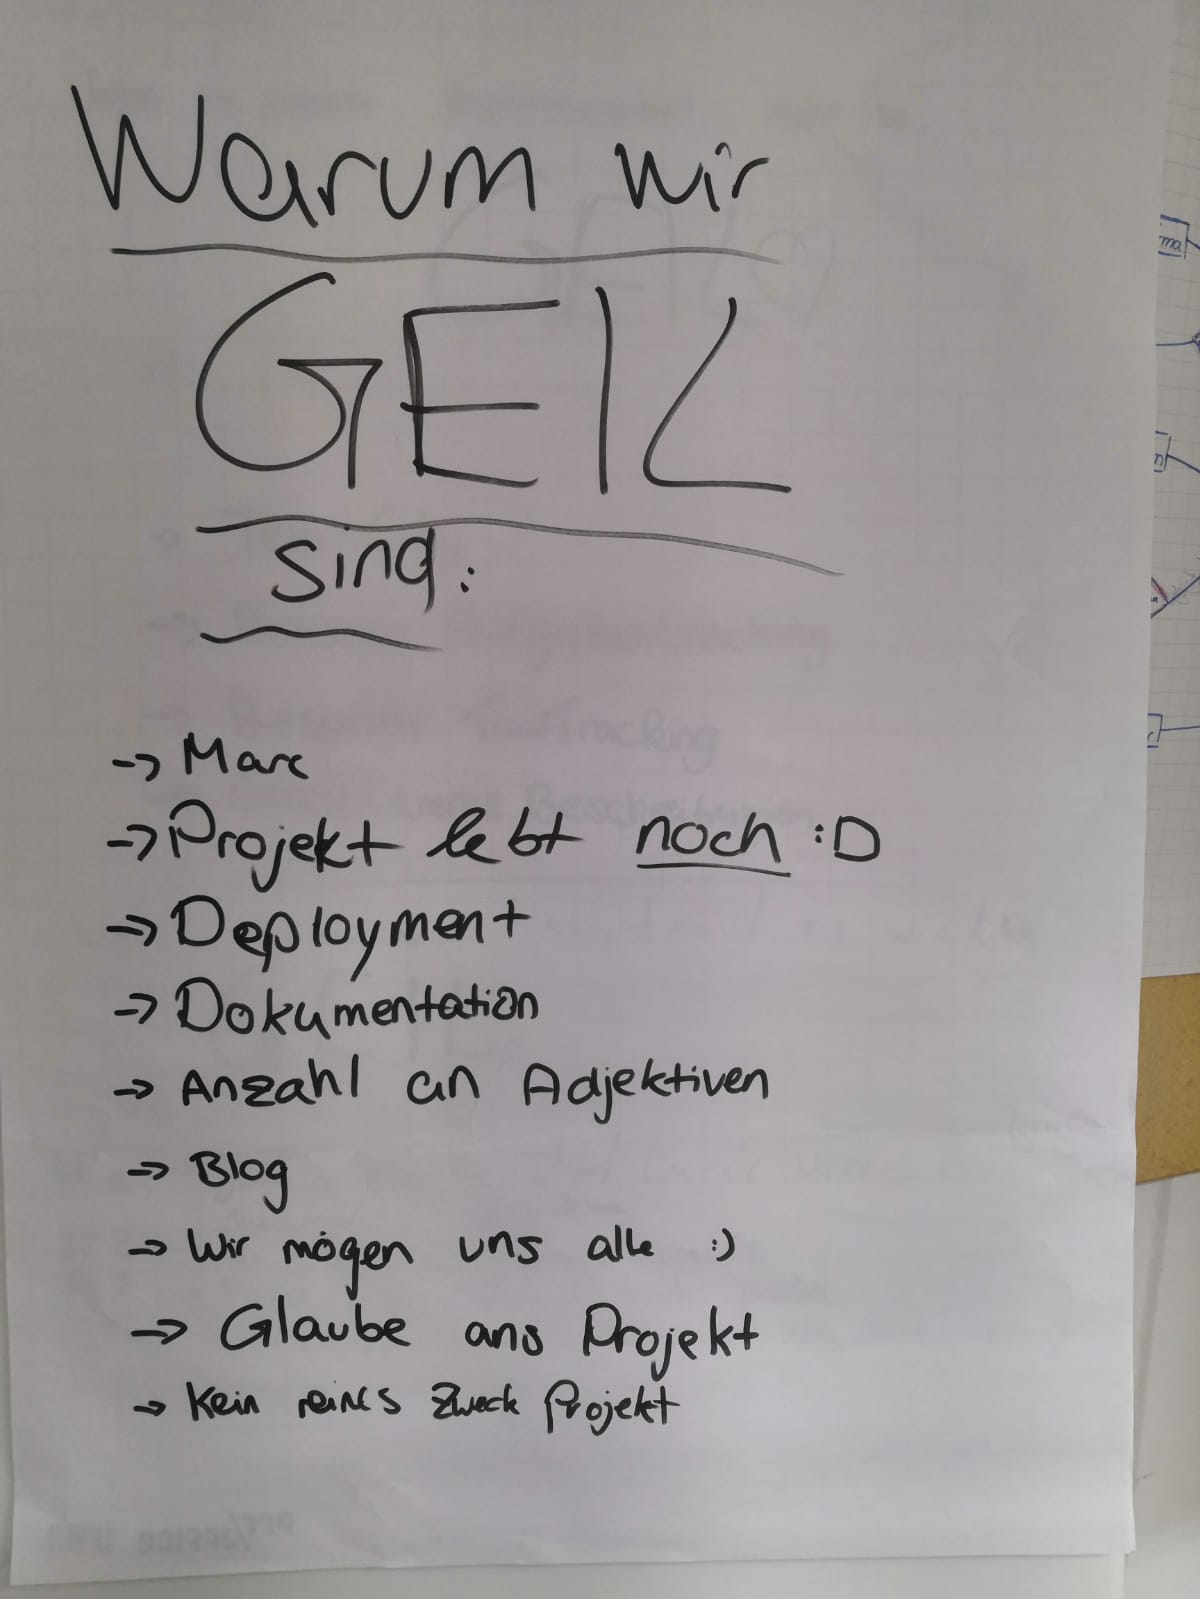 Warum wir
GEIL
sind:
-> Marc
-> Projekt lebt noch :D
-> Deployment
-> Dokumentation
-> Anzahl an Adjektiven
-> Blog
-> Wir mögen uns alle :)
-> Glaube ans Projekt
-> Kein reines Zweck Projekt